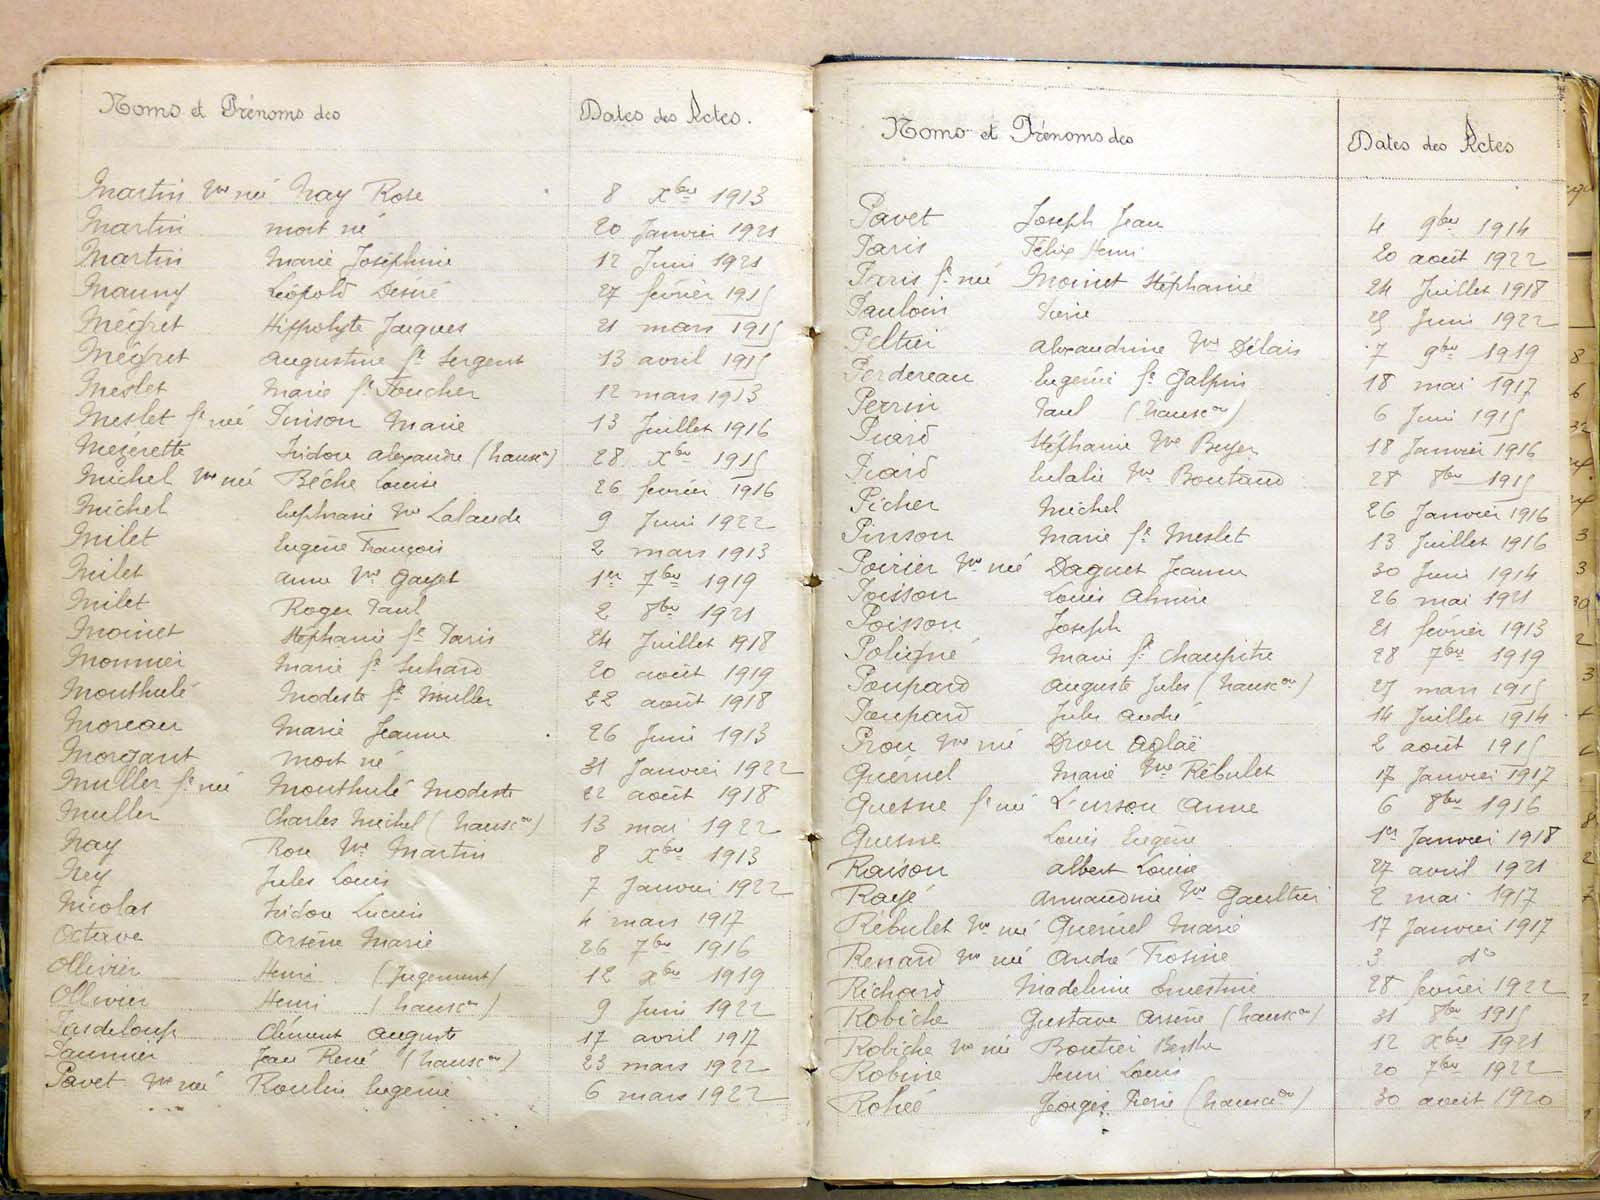 Noms et Prénoms des Dates des Actes.
Martin Vve née Nay Rose 8 Xbre 1913
Martin mort né 20 Janvier 1921
Martin Marie Joséphine 12 Juin 1921
Mauny Léopold Désiré 27 février 1915
Mégret Hippolyte Jacques 21 mars 1915
Mégret Augustine fe Sergent 13 avril 1915
Meslet Marie fe Foucher 12 mars 1913
Meslet fe née Pinson Marie 13 Juillet 1916
Mézerette Isidore Alexandre (transcon) 28 Xbre 1915
Michel Vve née Bêche Louise 26 février 1916
Michel Euphrasie Vve Lalande 9 Juin 1922
Milet Eugène François 2 mars 1913
Milet Anne Vve Gayet 1er 7bre 1919
Milet Roger Paul 2 8bre 1921
Moinet Stéphanie fe Paris 24 Juillet 1918
Monnier Marie fe Suhard 20 août 1919
Monthulé Modeste fe Muller 22 août 1918
Moreau Marie Jeanne 26 Juin 1913
Morgant Mort né 31 Janvier 1922
Muller fe née Monthulé Modeste 22 août 1918
Muller Charles Michel (transcon) 13 mai 1922
Nay Rose Vve Martin 8 Xbre 1913
Ney Jules Louis 7 Janvier 1922
Nicolas Isidore Lucien 4 mars 1917
Octave Arsène Marie 26 7bre 1916
Ollivier Henri (Jugement) 12 Xbre 1919
Ollivier Henri (transcon) 9 Juin 1922
Pasdeloup Clément Auguste 17 avril 1917
Saunier Jean René (transcon) 23 mars 1922
Pavet Vve née Roulin Eugénie 6 mars 1922
Noms et Prénoms des Dates des Actes
Pavet Joseph Jean 4 9bre 1914
Paris Félix Henri 20 août 1922
Paris fe née Moinet Stéphanie 24 Juillet 1918
Pauloin Pierre 25 Juin 1922
Peltier Alexandrine Vve Délais 7 9bre 1919
Perdereau Eugénie fe Galpin 18 mai 1917
Perrin Paul (transcon) 6 Juin 1915
Piard Stéphanie Vve Buyer 18 Janvier 1916
Piard Eulalie Vve Boutaud 28 8bre 1915
Picher Michel 26 Janvier 1916
Pinson Marie fe Meslet 13 Juillet 1916
Poirier Vve née Daguet Jeanne 30 Juin 1914
Poisson Louis Almire 26 mai 1921
Poisson Joseph 21 février 1913
Poligné Marie fe Chaupitre 28 7bre 1919
Poupard Auguste Jules (transcon) 27 mars 1915
Poupard Jules André 14 Juillet 1914
Prou Vve née Dron Aglaë 2 août 1915
Quéruel Marie Vve Rébulet 17 Janvier 1917
Quesne fe née L'urson Anne 6 8bre 1916
Quesne Louis Eugène 1er Janvier 1918
Raison Albert Louise 27 avril 1921
Rayé Armandine Vve Gaultier 2 mai 1917
Rébulet Vve née Quéruel Marie 17 Janvier 1917
Renard Vve née André Frosine 3 do
Richard Madeleine Ernestine 28 février 1922
Robiche Gustave Arsène (transcon) 31 8bre 1915
Robiche Vve née Boutier Berthe 12 Xbre 1921
Robine Henri Louis 20 7bre 1922
Rohéé Georges Pierre (transcon) 30 août 1920